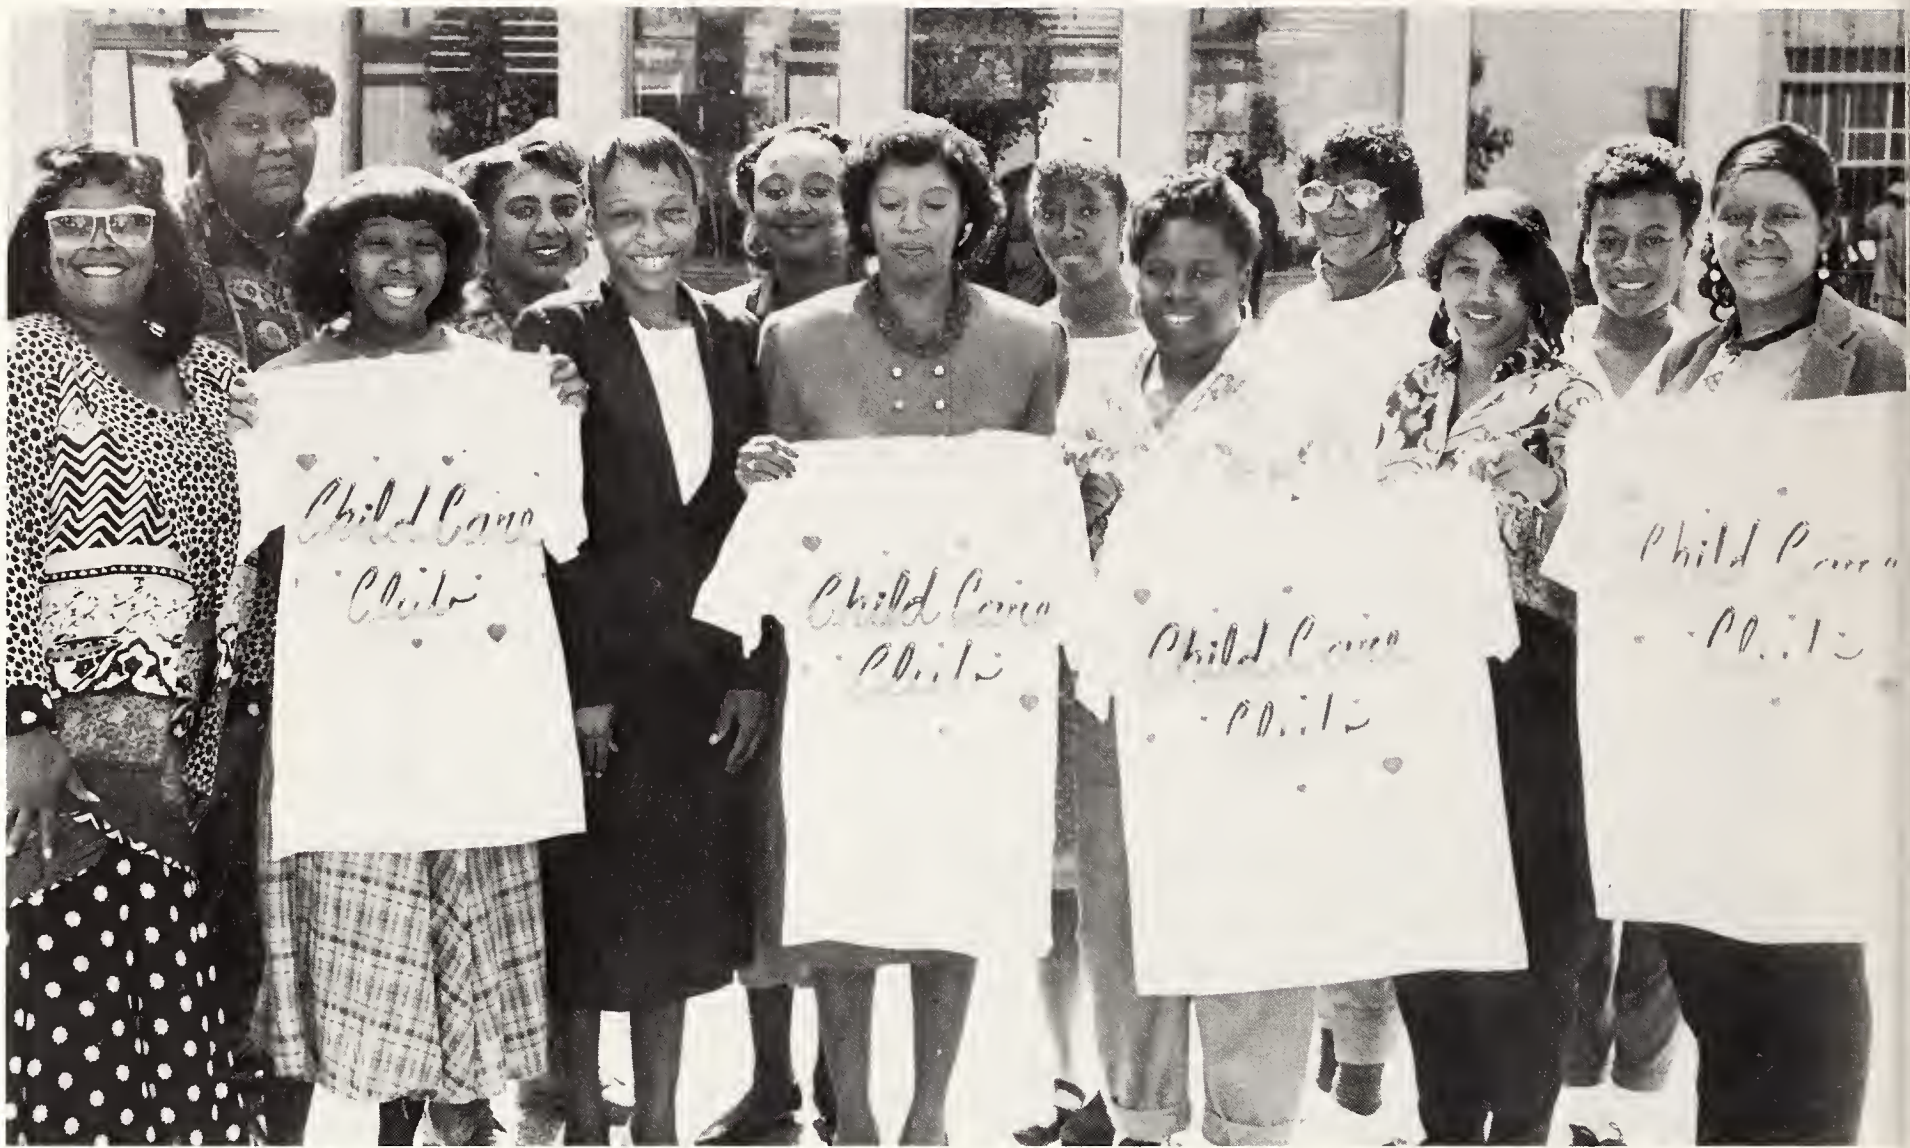 Child Care
Club
Child Care
Club
Child Care
Club
Child Care
Club